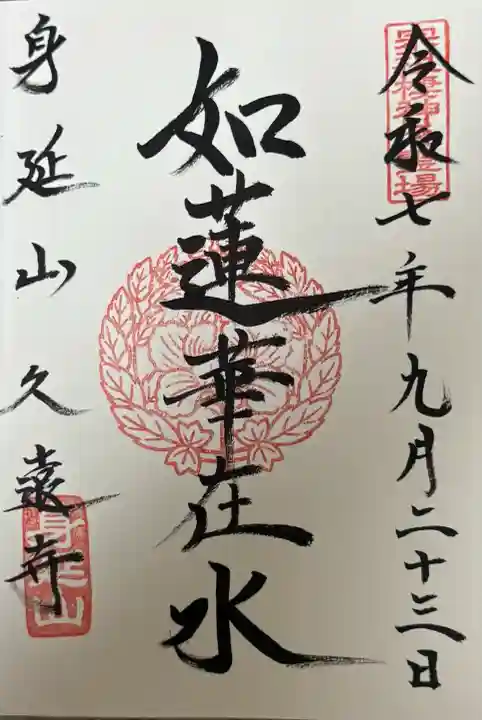 令和七年九月二十三日
如蓮華在水
身延山久遠寺
身延山